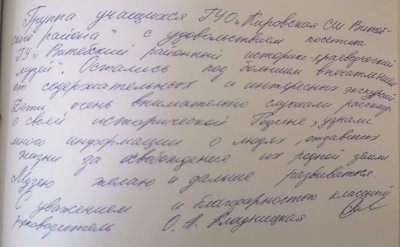 Группа учащихся ГУО „Кировская СШ Витеб-
ского района" с удовольствием посетила
ГУ „Витебский районный историко-краеведческий
музей". Остались под большим впечатлением
от содержательных и интересных экскурсий.
Дети очень внимательно слушали рассказ
о своей исторической Родине, узнали
много информации о людях, отдавших
жизни за освобождение их родной земли.
Музею желаю и дальше развиваться
С уважением и благодарностью классный
руководитель О. А.